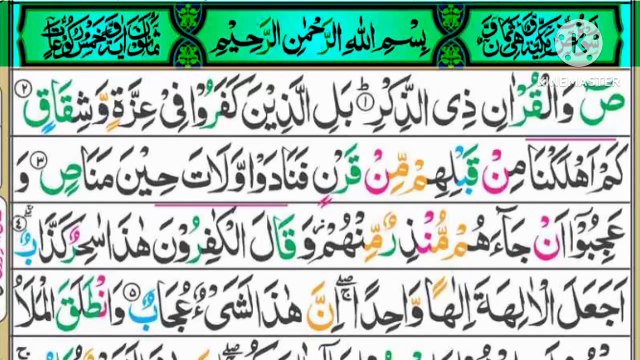 بِسْمِ اللهِ الرَّحْمٰنِ الرَّحِيْمِ
KINEMASTER
صٓ وَالْقُرْاٰنِ ذِی الذِّكْرِ ۱ بَلِ الَّذِيْنَ كَفَرُوْا فِیْ عِزَّةٍ وَّشِقَاقٍ ۲
كَمْ اَهْلَكْنَا مِنْ قَبْلِهِمْ مِّنْ قَرْنٍ فَنَادَوْا وَّلَاتَ حِيْنَ مَنَاصٍ ۳ وَ
عَجِبُوْۤا اَنْ جَآءَهُمْ مُّنْذِرٌ مِّنْهُمْ ؗ وَقَالَ الْكٰفِرُوْنَ هٰذَا سٰحِرٌ كَذَّابٌ ۴
اَجَعَلَ الْاٰلِهَةَ اِلٰهًا وَّاحِدًا ۖۚ اِنَّ هٰذَا لَشَیْءٌ عُجَابٌ ۵ وَانْطَلَقَ الْمَلَاُ